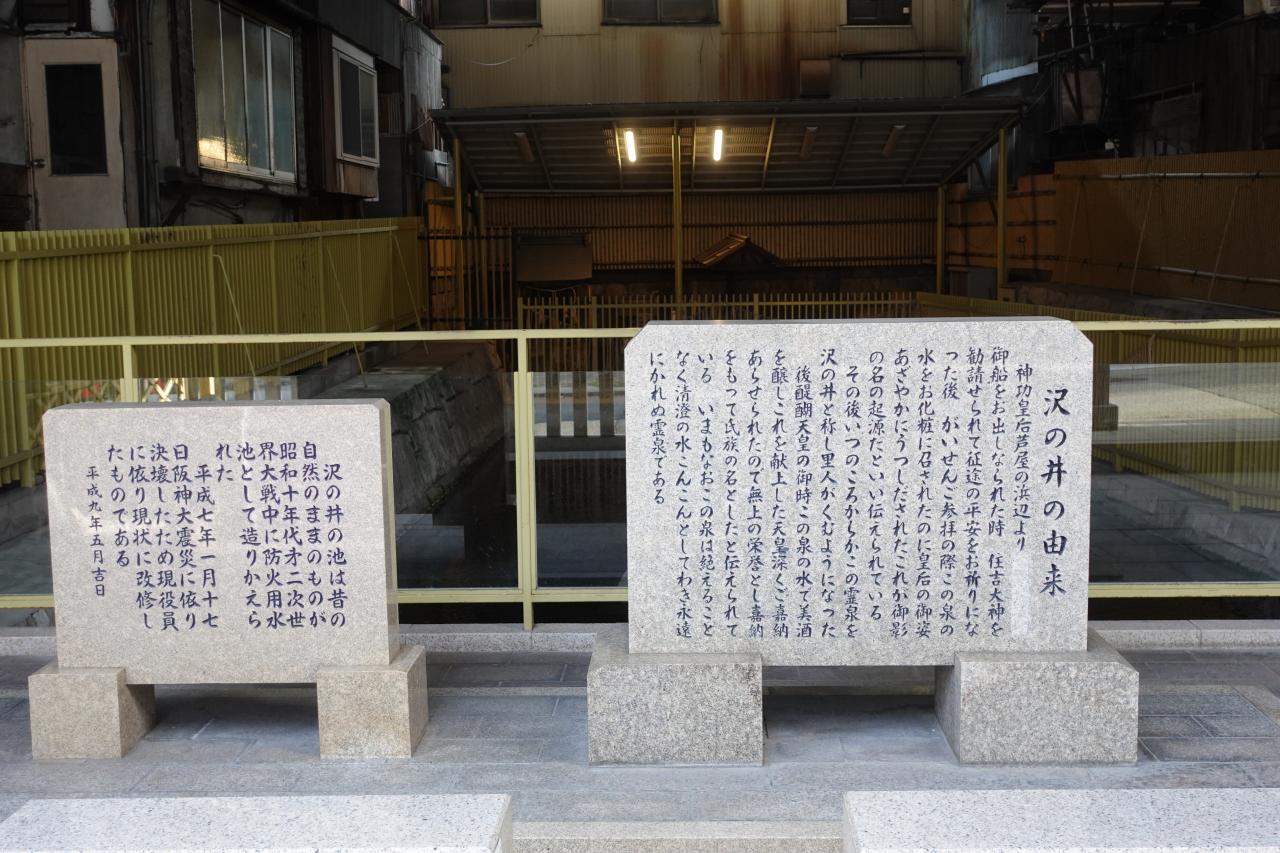 沢の井の由来
神功皇后芦屋の浜辺より
御船をお出しなられた時　住吉大神を
勧請せられて征途の平安をお祈りにな
った後　がいせんご参拝の際この泉の
水をお化粧に召されたのに皇后の御姿
あざやかにうつしだされたこれが御影
の名の起源だといい伝えられている
その後いつのころからかこの霊泉を
沢の井と称し里人がくむようになった
後醍醐天皇の御時この泉の水で美酒
を醸しこれを献上した天皇深くご嘉納
あらせられたので無上の栄誉とし嘉納
をもって氏族の名としたと伝えられて
いる　いまもなおこの泉は絶えること
なく清澄の水こんこんとしてわき永遠
にかれぬ霊泉である
沢の井の池は昔の
自然のままのものが
昭和十年代才二次世
界大戦中に防火用水
池として造りかえら
れた
平成七年一月十七
日阪神大震災に依り
決壊したため現役員
に依り現状に改修し
たものである
平成九年五月吉日